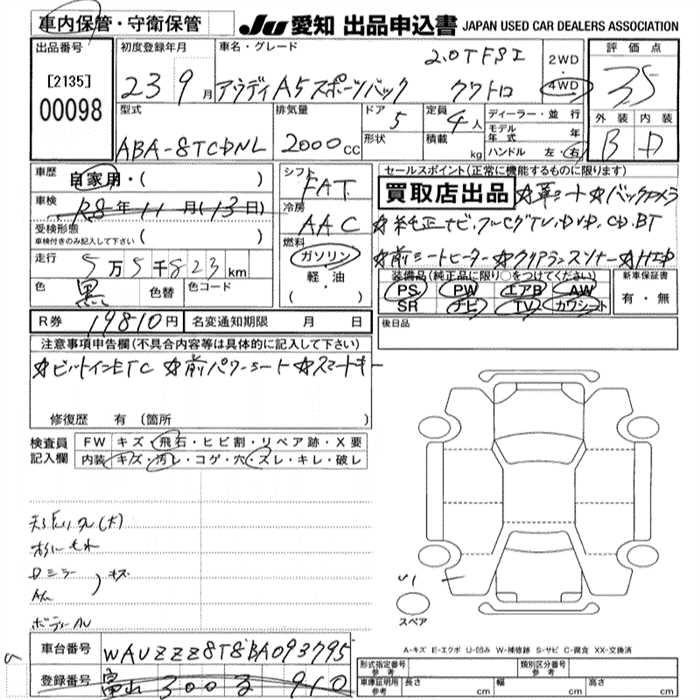 車内保管・守衛保管
JU 愛知 出品申込書 JAPAN USED CAR DEALERS ASSOCIATION
出品番号
[2135]
00098
初度登録年月
23 9月
車名・グレード
2.0TFSI
アウディA5スポーツバック クワトロ
2WD
・
4WD
評価点
3.5
外装 内装
B D
型式
ABA-8TCDNL
排気量
2000cc
ドア 5
形状
定員 4人
積載 kg
ディーラー・並行
モデル年式 年
ハンドル 左・右
車歴
自家用・( )
車検
R8年11月(13日)
受検形態
車検付きのみ記入して下さい ( )
走行
5万5千823km
色 黒 色替 色コード
シフト
FAT
冷房
AAC
燃料
ガソリン
・軽・油
( )
セールスポイント(正常に機能するものに限ります)
買取店出品 ☆革シート☆バックカメラ
☆純正ナビ・フルセグTV・DVD・CD・BT
☆前シートヒーター☆クリアランスソナー☆HID
装備品(純正品に限り○をつけてください)
PS PW エアB AW
SR ナビ TV カワシート
新車保証書
有・無
R券 19810円 名変通知期限 月 日
後日品
注意事項申告欄(不具合内容等は具体的に記入して下さい)
☆ビルトインETC ☆前パワーシート☆スマートキー
修復歴 有 (箇所
検査員
記入欄
FW キズ・飛石・ヒビ割・リペア跡・X要
内装 キズ・汚レ・コゲ・穴・スレ・キレ・破レ
Dミラー
キズ
スペア
A-キズ E-エクボ U-凹み W-補修跡 S-サビ C-腐食 XX-交換済
車台番号 WAUZZZ8T8BA093795
登録番号 富山 300 る 910
形式指定番号
参考
類別区分番号
参考
車庫証明用
参考
長さ cm 幅 cm 高さ cm